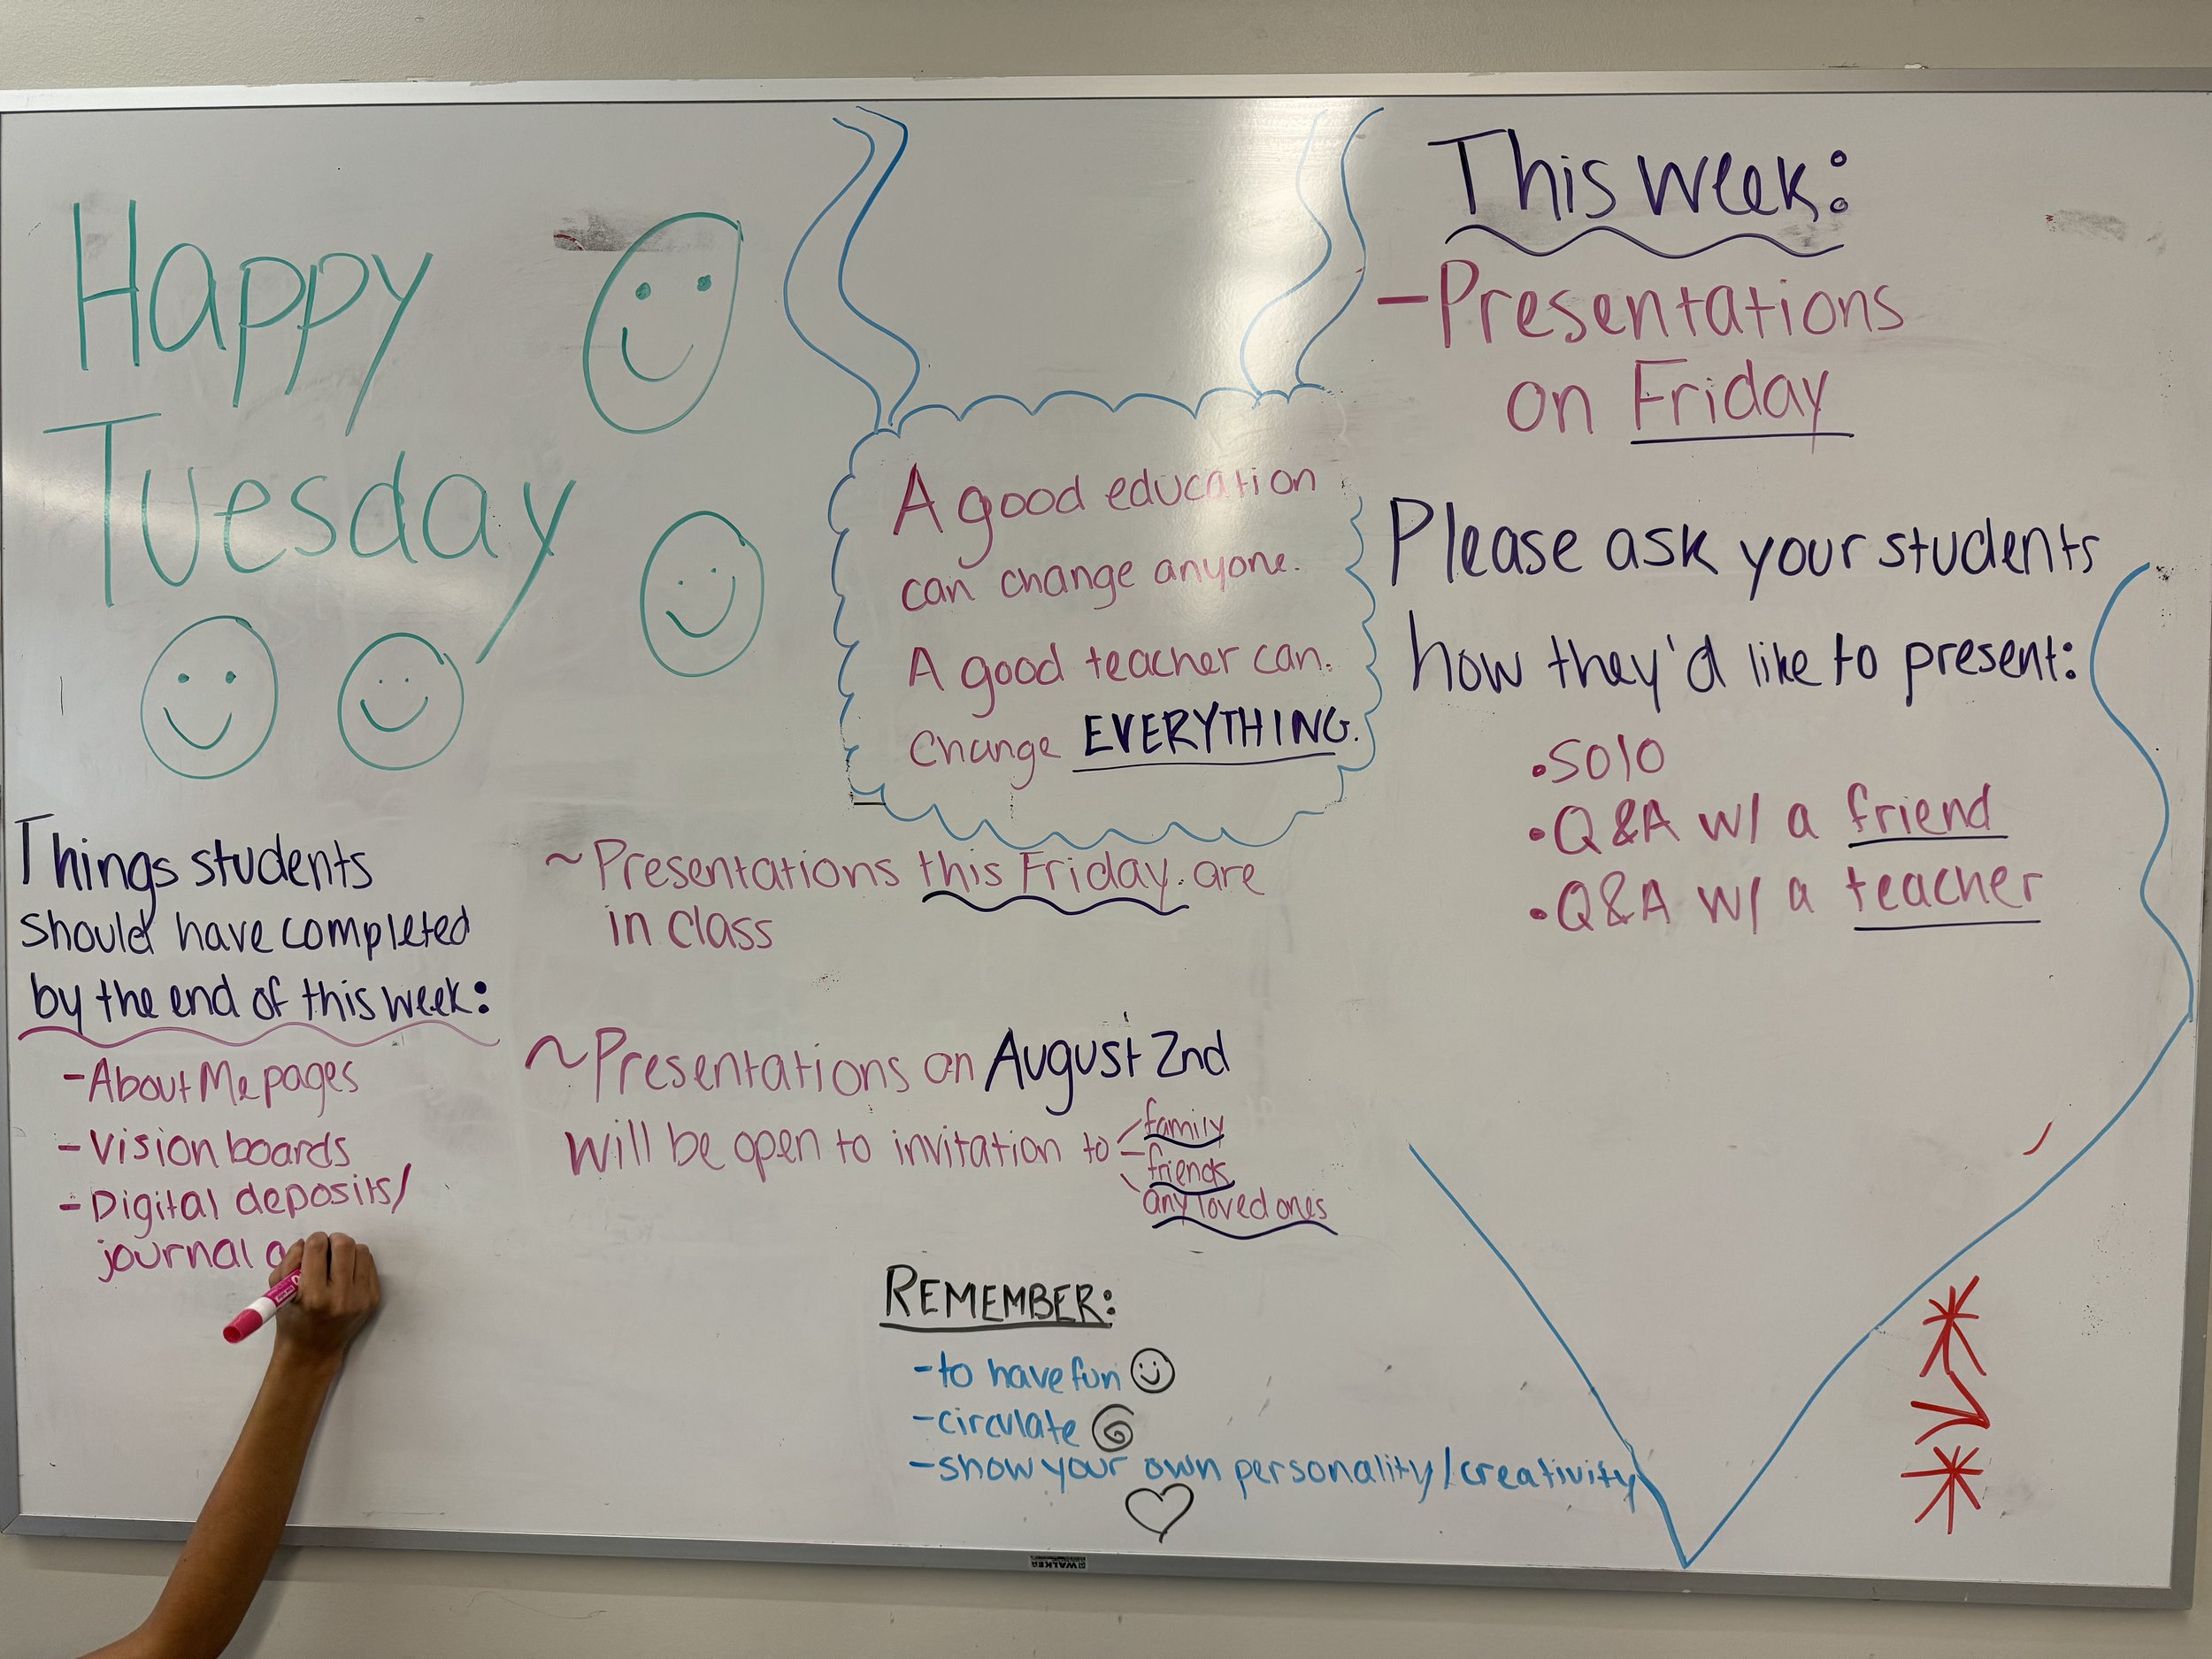 Happy
Tuesday
A good education
can change anyone.
A good teacher can
change EVERYTHING.
This week:
-Presentations
on Friday
Please ask your students
how they'd like to present:
• Solo
• Q&A w/ a friend
• Q&A w/ a teacher
Things students
should have completed
by the end of this week:
- About Me pages
- Vision boards
- Digital deposits/
journal
~Presentations this Friday are
in class
~Presentations on August 2nd
will be open to invitation to
family
friends
any loved ones
REMEMBER:
-to have fun
-circulate
-show your own personality/creativity
WALKER